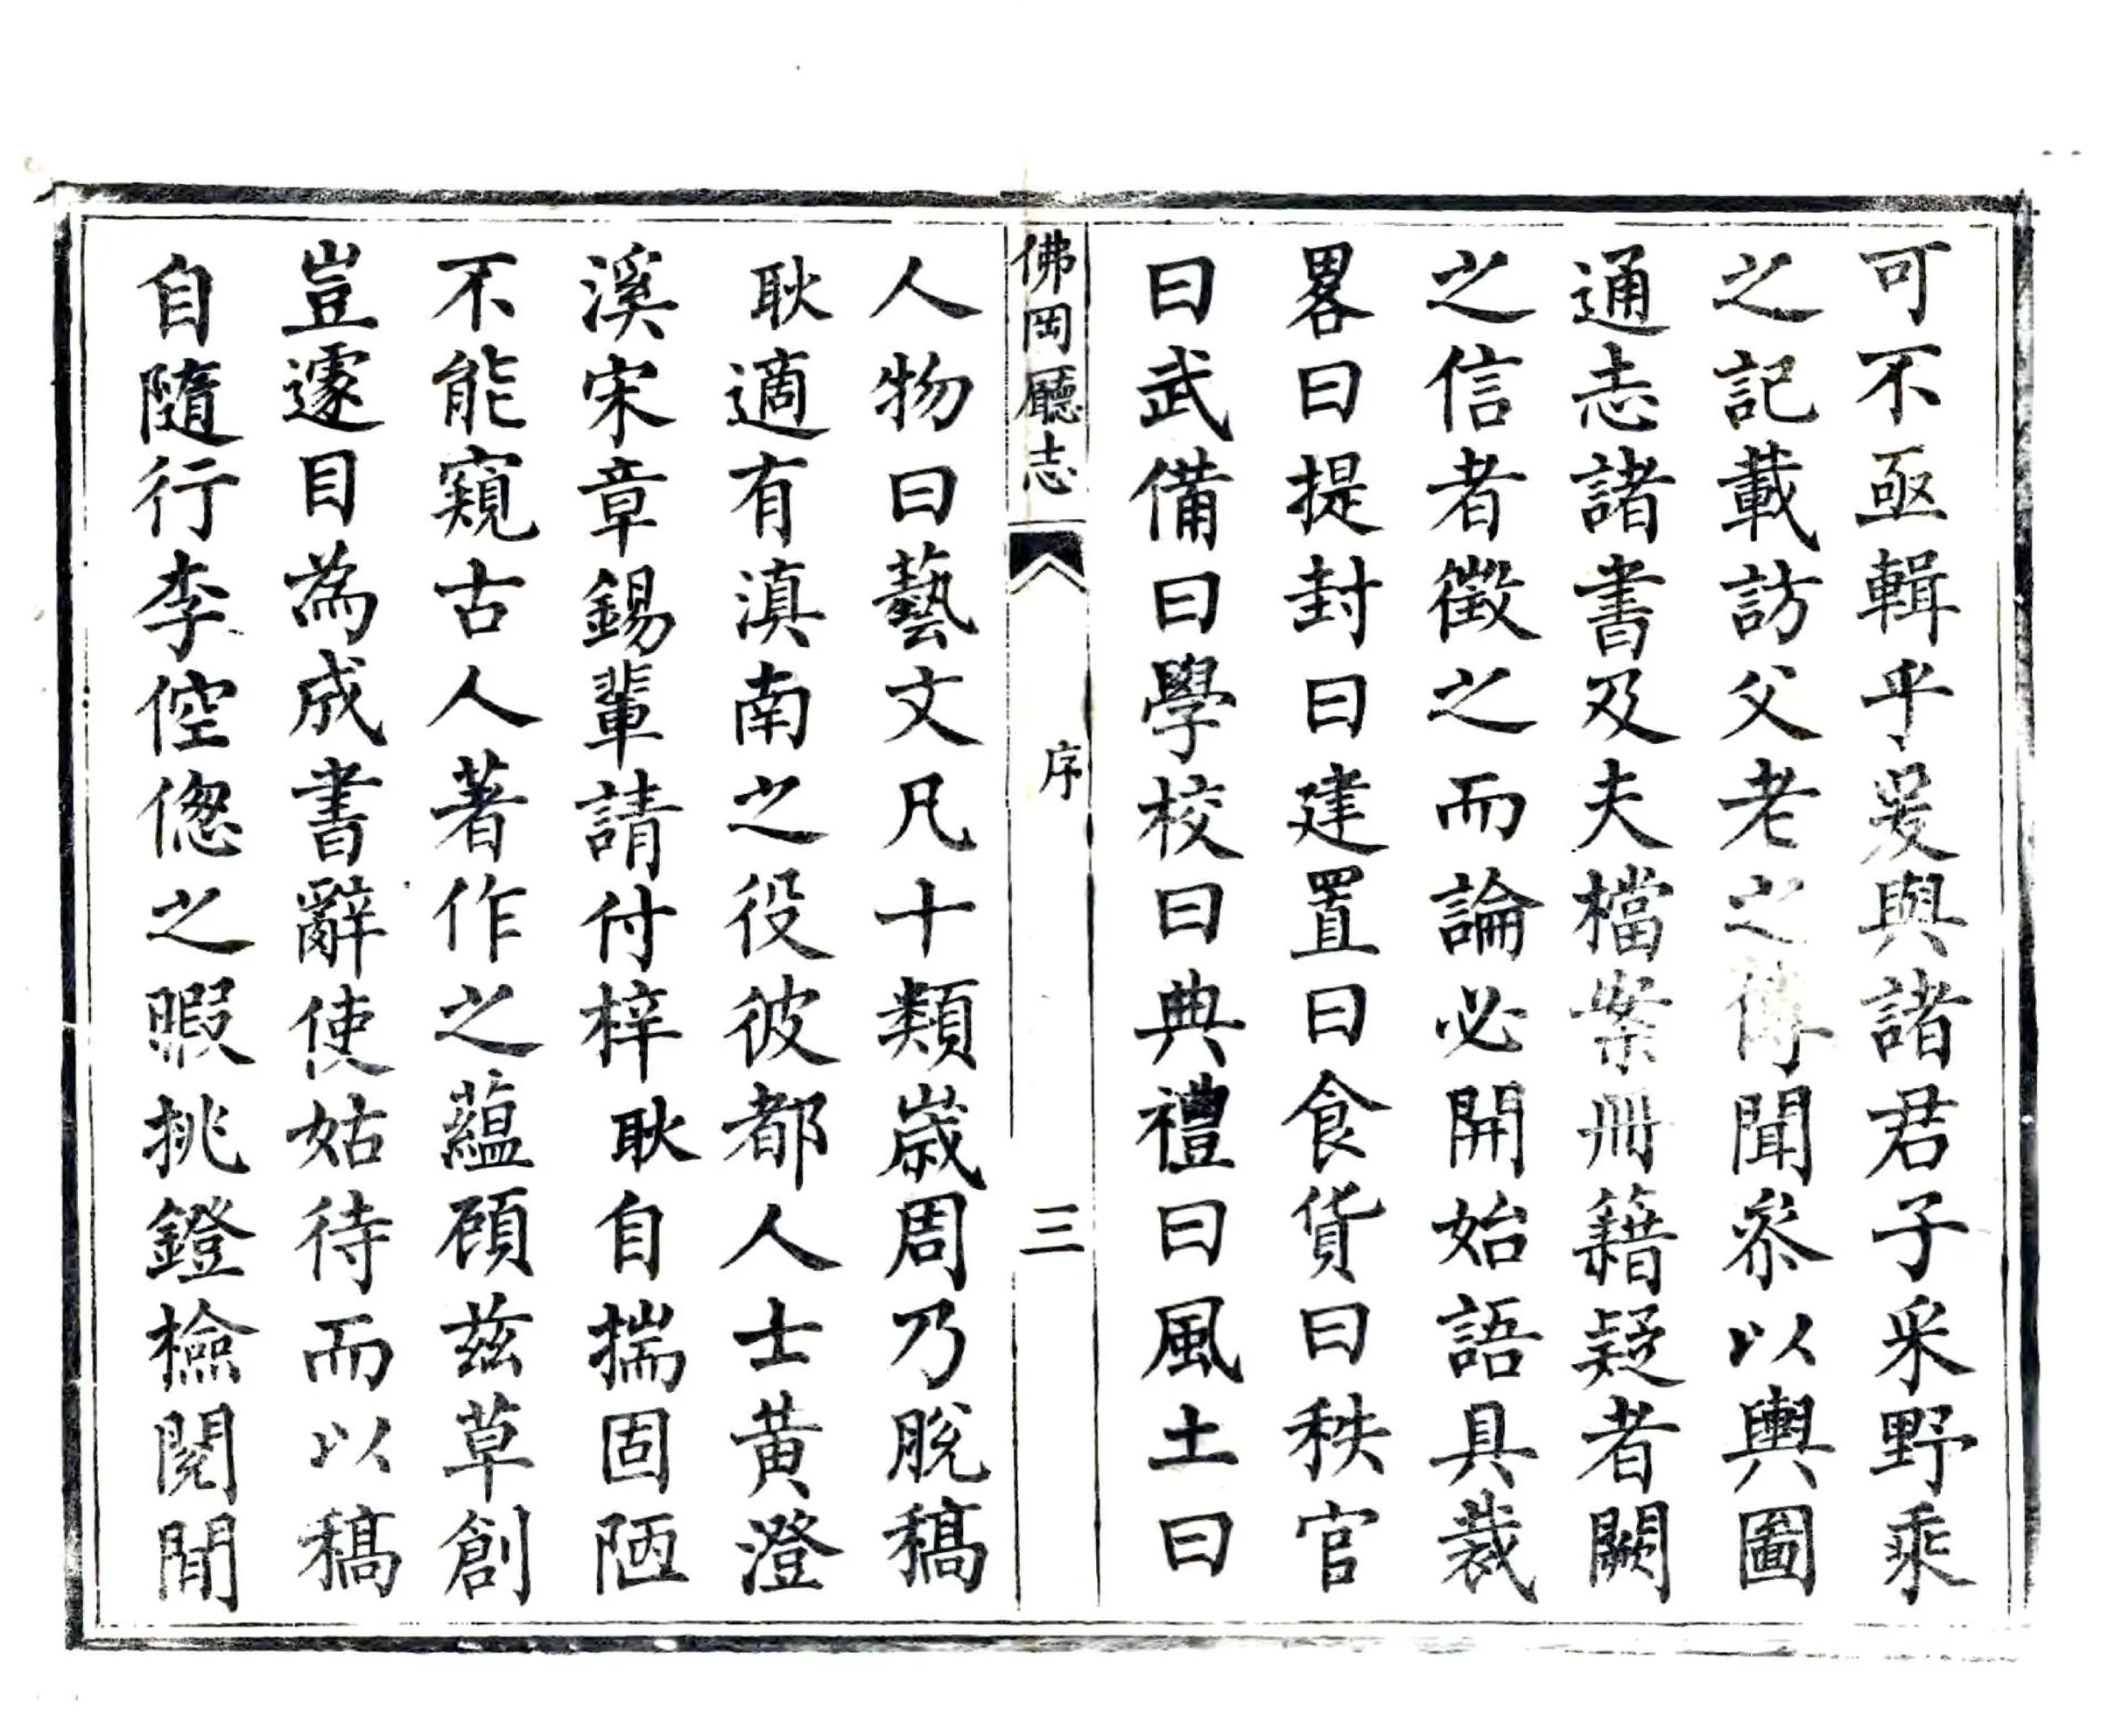 可不亟輯乎爰與諸君子采野乘
之記載訪父老之傳聞叅以輿圖
通志諸書及夫檔案冊籍疑者闕
之信者徵之而論必開始語具裁
畧曰提封曰建置曰食貨曰秩官
曰武備曰學校曰典禮曰風土曰
佛岡廳志
序
三
人物曰藝文凡十類歲周乃脫稿
耿適有滇南之役彼都人士黃澄
溪宋章錫輩請付梓耿自揣固陋
不能窺古人著作之蘊顧茲草創
豈遽目為成書辭使姑待而以稿
自隨行李倥傯之暇挑鐙檢閱間